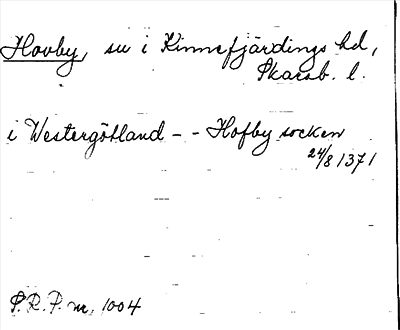 Hovby, sn i Kinnefjärdings hd,
Skarab. l.
i Westergötland - - Hofby socken
24/8 1371
S.R.P. nr. 1004